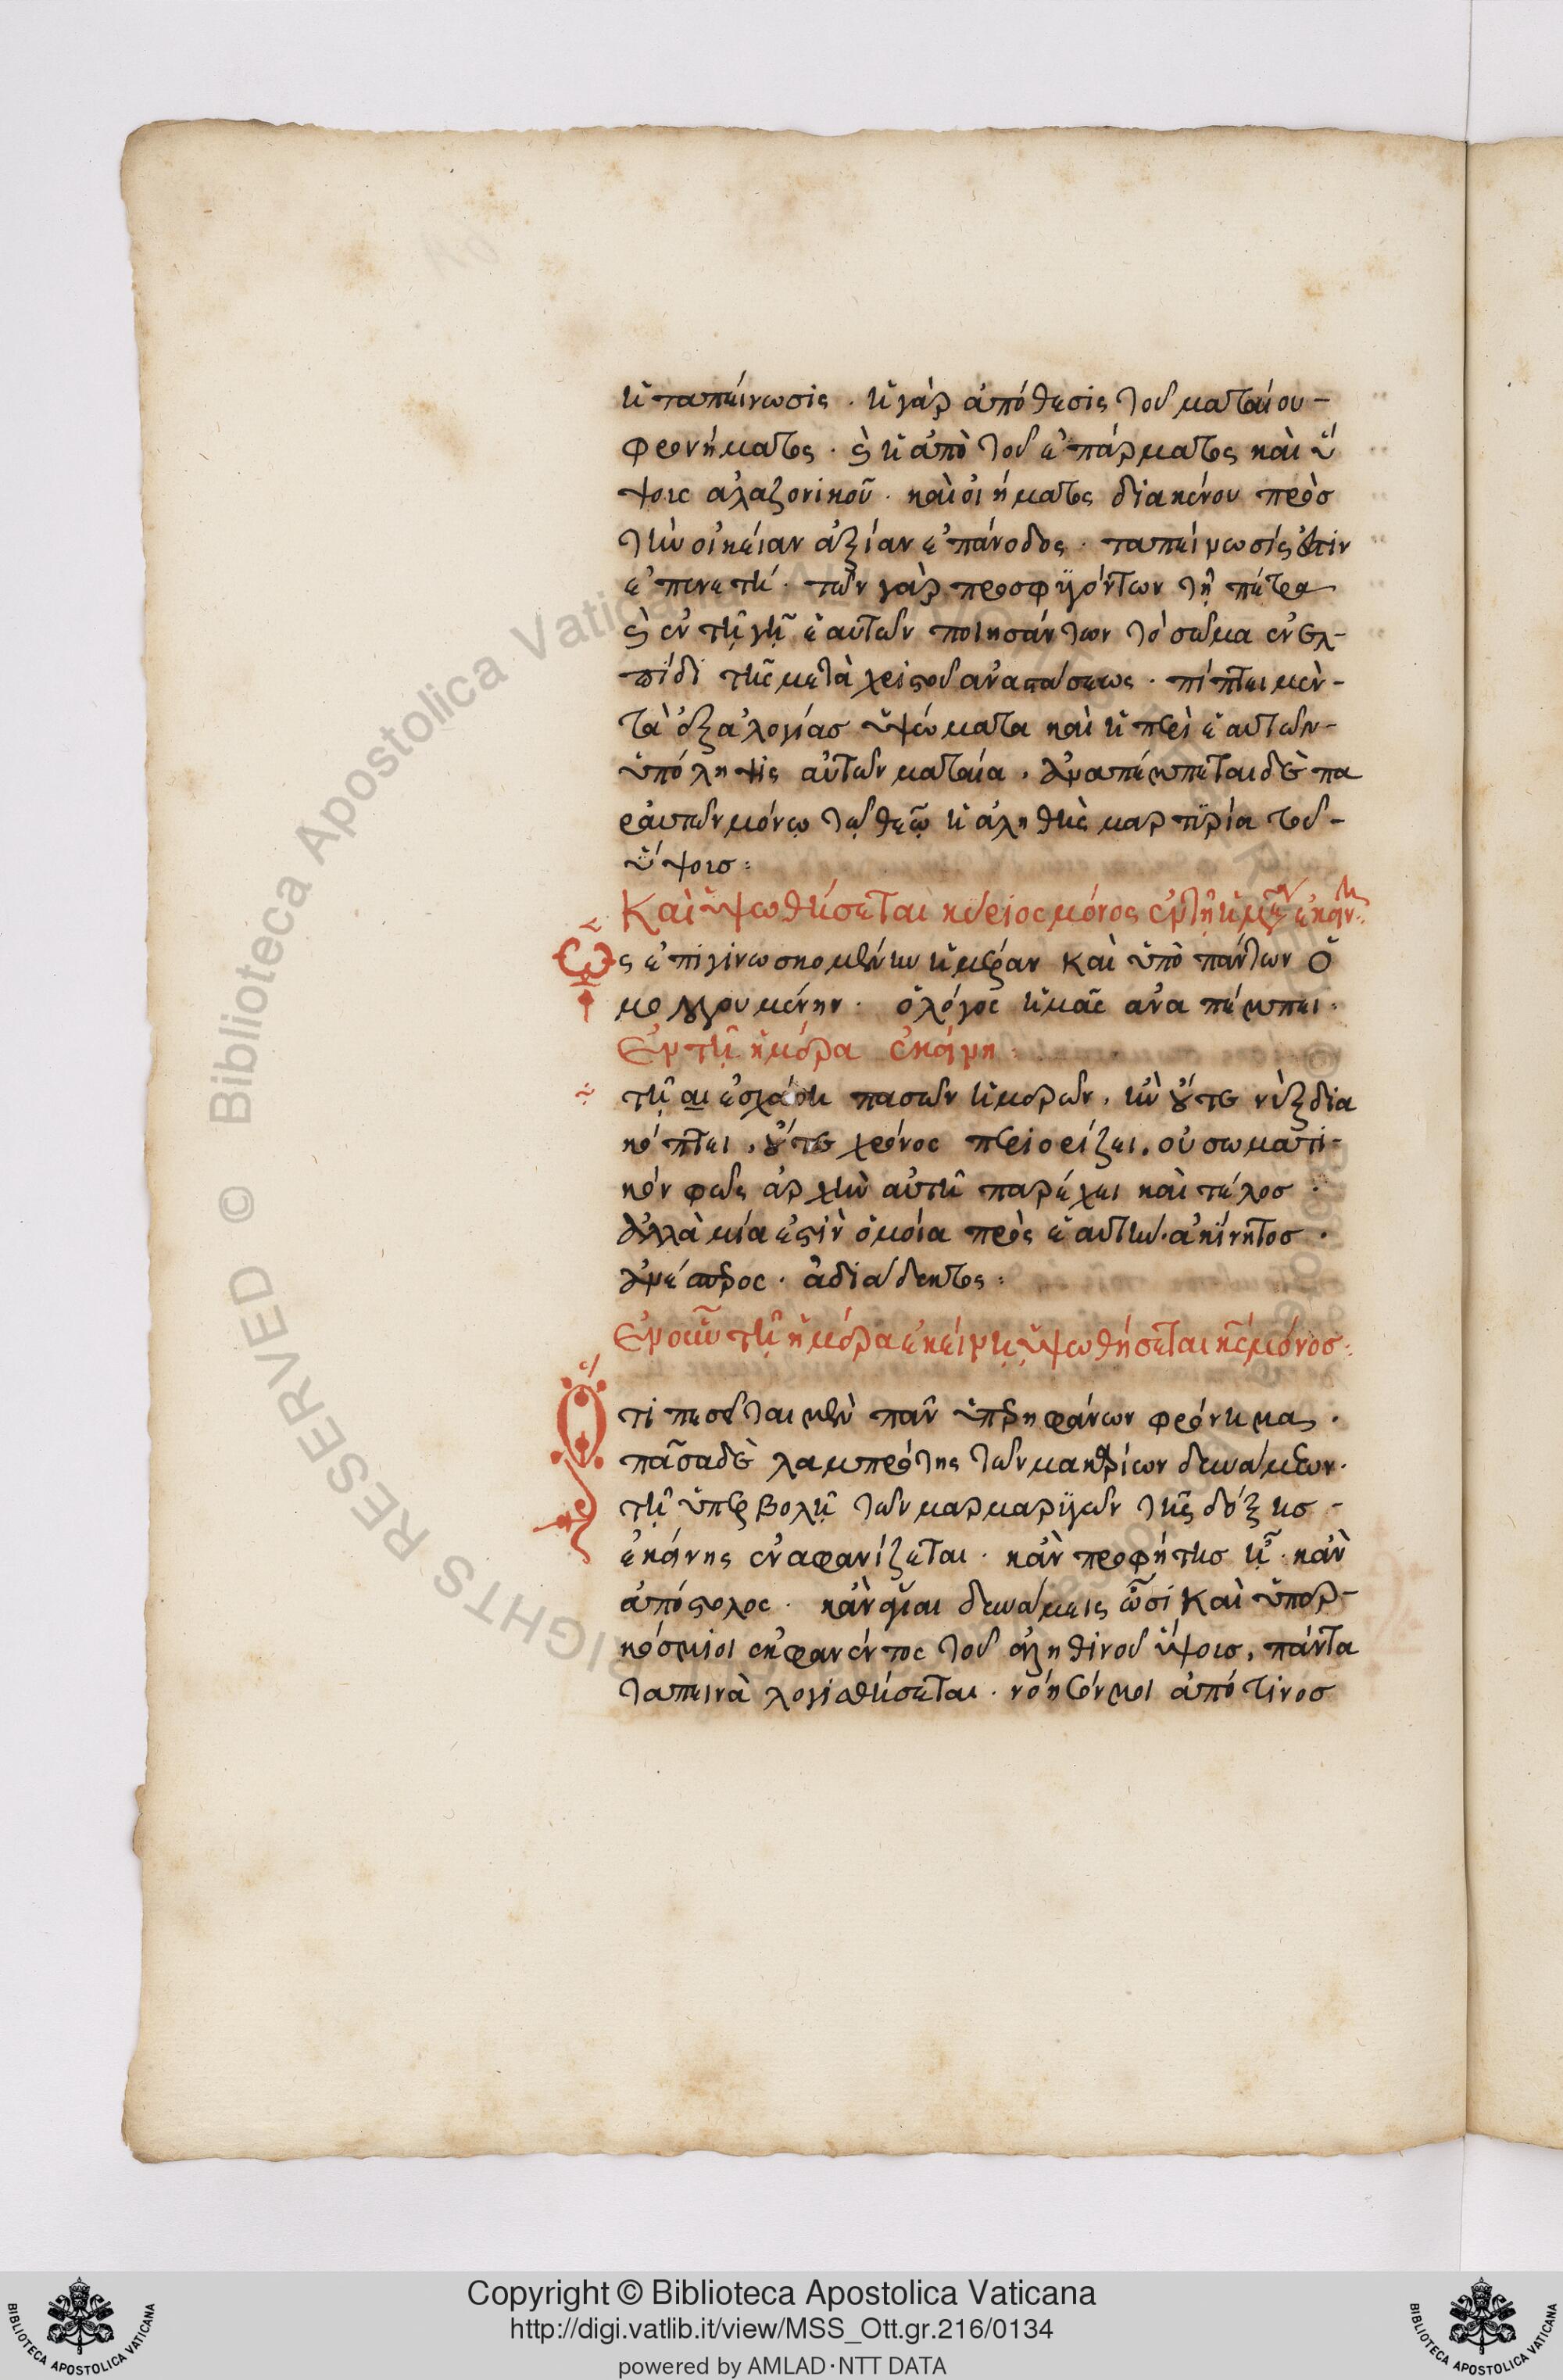 ἡ ταπείνωσις · ἡ γὰρ ἀπόθεσις τοῦ ματαίου-
φρονήματος · καὶ ἡ ἀπὸ τοῦ ἐπάρματος καὶ ὕ
ψους ἀλαζονικοῦ · καὶ οἰήματος διακένου πρὸς
τὴν οἰκείαν ἀξίαν ἐπάνοδος · ταπείνωσίς ἐστιν
ἐπενετή · τῶν γὰρ προσφϋγόντων τῇ πέτρα
καὶ ἐν τῇ γῇ ἑαυτῶν ποιησάντων τὸ σῶμα ἐν ἐλ-
πίδι τῆς μετὰ χριστοῦ ἀναστάσεως · πίπτει μὲν-
τὰ ἀλογίας ὑψώματα καὶ ἡ περὶ ἑαυτῶν-
ὑπόληψις αὐτῶν ματαία · ἀναπέμπεται δὲ πα
ρ αὐτῶν μόνῳ τῷ θεῷ ἡ ἀληθὴς μαρτϋρία τοῦ-
ὕψους :
Καὶ ὑψωθήσεται κύριος μόνος ἐν τῇ ἡμέρα ἐκείνη :
Ὡς ἐπιγινωσκομένην ἡμέραν καὶ ὑπὸ πάντων ὁ
μολογουμένην · ὁ λόγος ἡμᾶς ἀναπέμπει ·
Ἐν τῇ ἡμέρα ἐκείνη :
τῇ ἐσχάτη πασῶν ἡμερῶν · ἣν οὔτε νὺξ δια
κόπτει · οὔτε χρόνος περιορίζει · οὐ σωματι-
κὸν φῶς ἀρχὴν αὐτῇ παρέχει καὶ τέλος ·
ἀλλὰ μία ἐστὶν ὁμοία πρὸς ἑαυτήν · ἀκίνητος ·
ἀνέσπερος · ἀδιάδεκτος :
Ἐν οὖν τῇ ἡμέρα ἐκείνῃ ὑψωθήσεται κς μόνος :
Ὅτι πεσεῖται μὲν πᾶν ὑπερηφάνων φρόνημα ·
πᾶσα δὲ λαμπρότης τῶν μακαρίων δυνάμεων ·
τῇ ὑπερβολῇ τῶν μαρμαρϋγῶν τῆς δόξης -
ἐκείνης ἐναφανίζεται · κἂν προφήτης ᾖ · κἂν
ἀπόστολος · κἂν ἅγιαι δυνάμεις ὦσι καὶ ὑπερ-
κόσμιοι ἐκφανέντος τοῦ ἀληθινοῦ ὕψους · πάντα
ταπεινὰ λογισθήσεται · ἀπό τινος
Copyright © Biblioteca Apostolica Vaticana
http://digi.vatlib.it/view/MSS_Ott.gr.216/0134
powered by AMLAD·NTT DATA